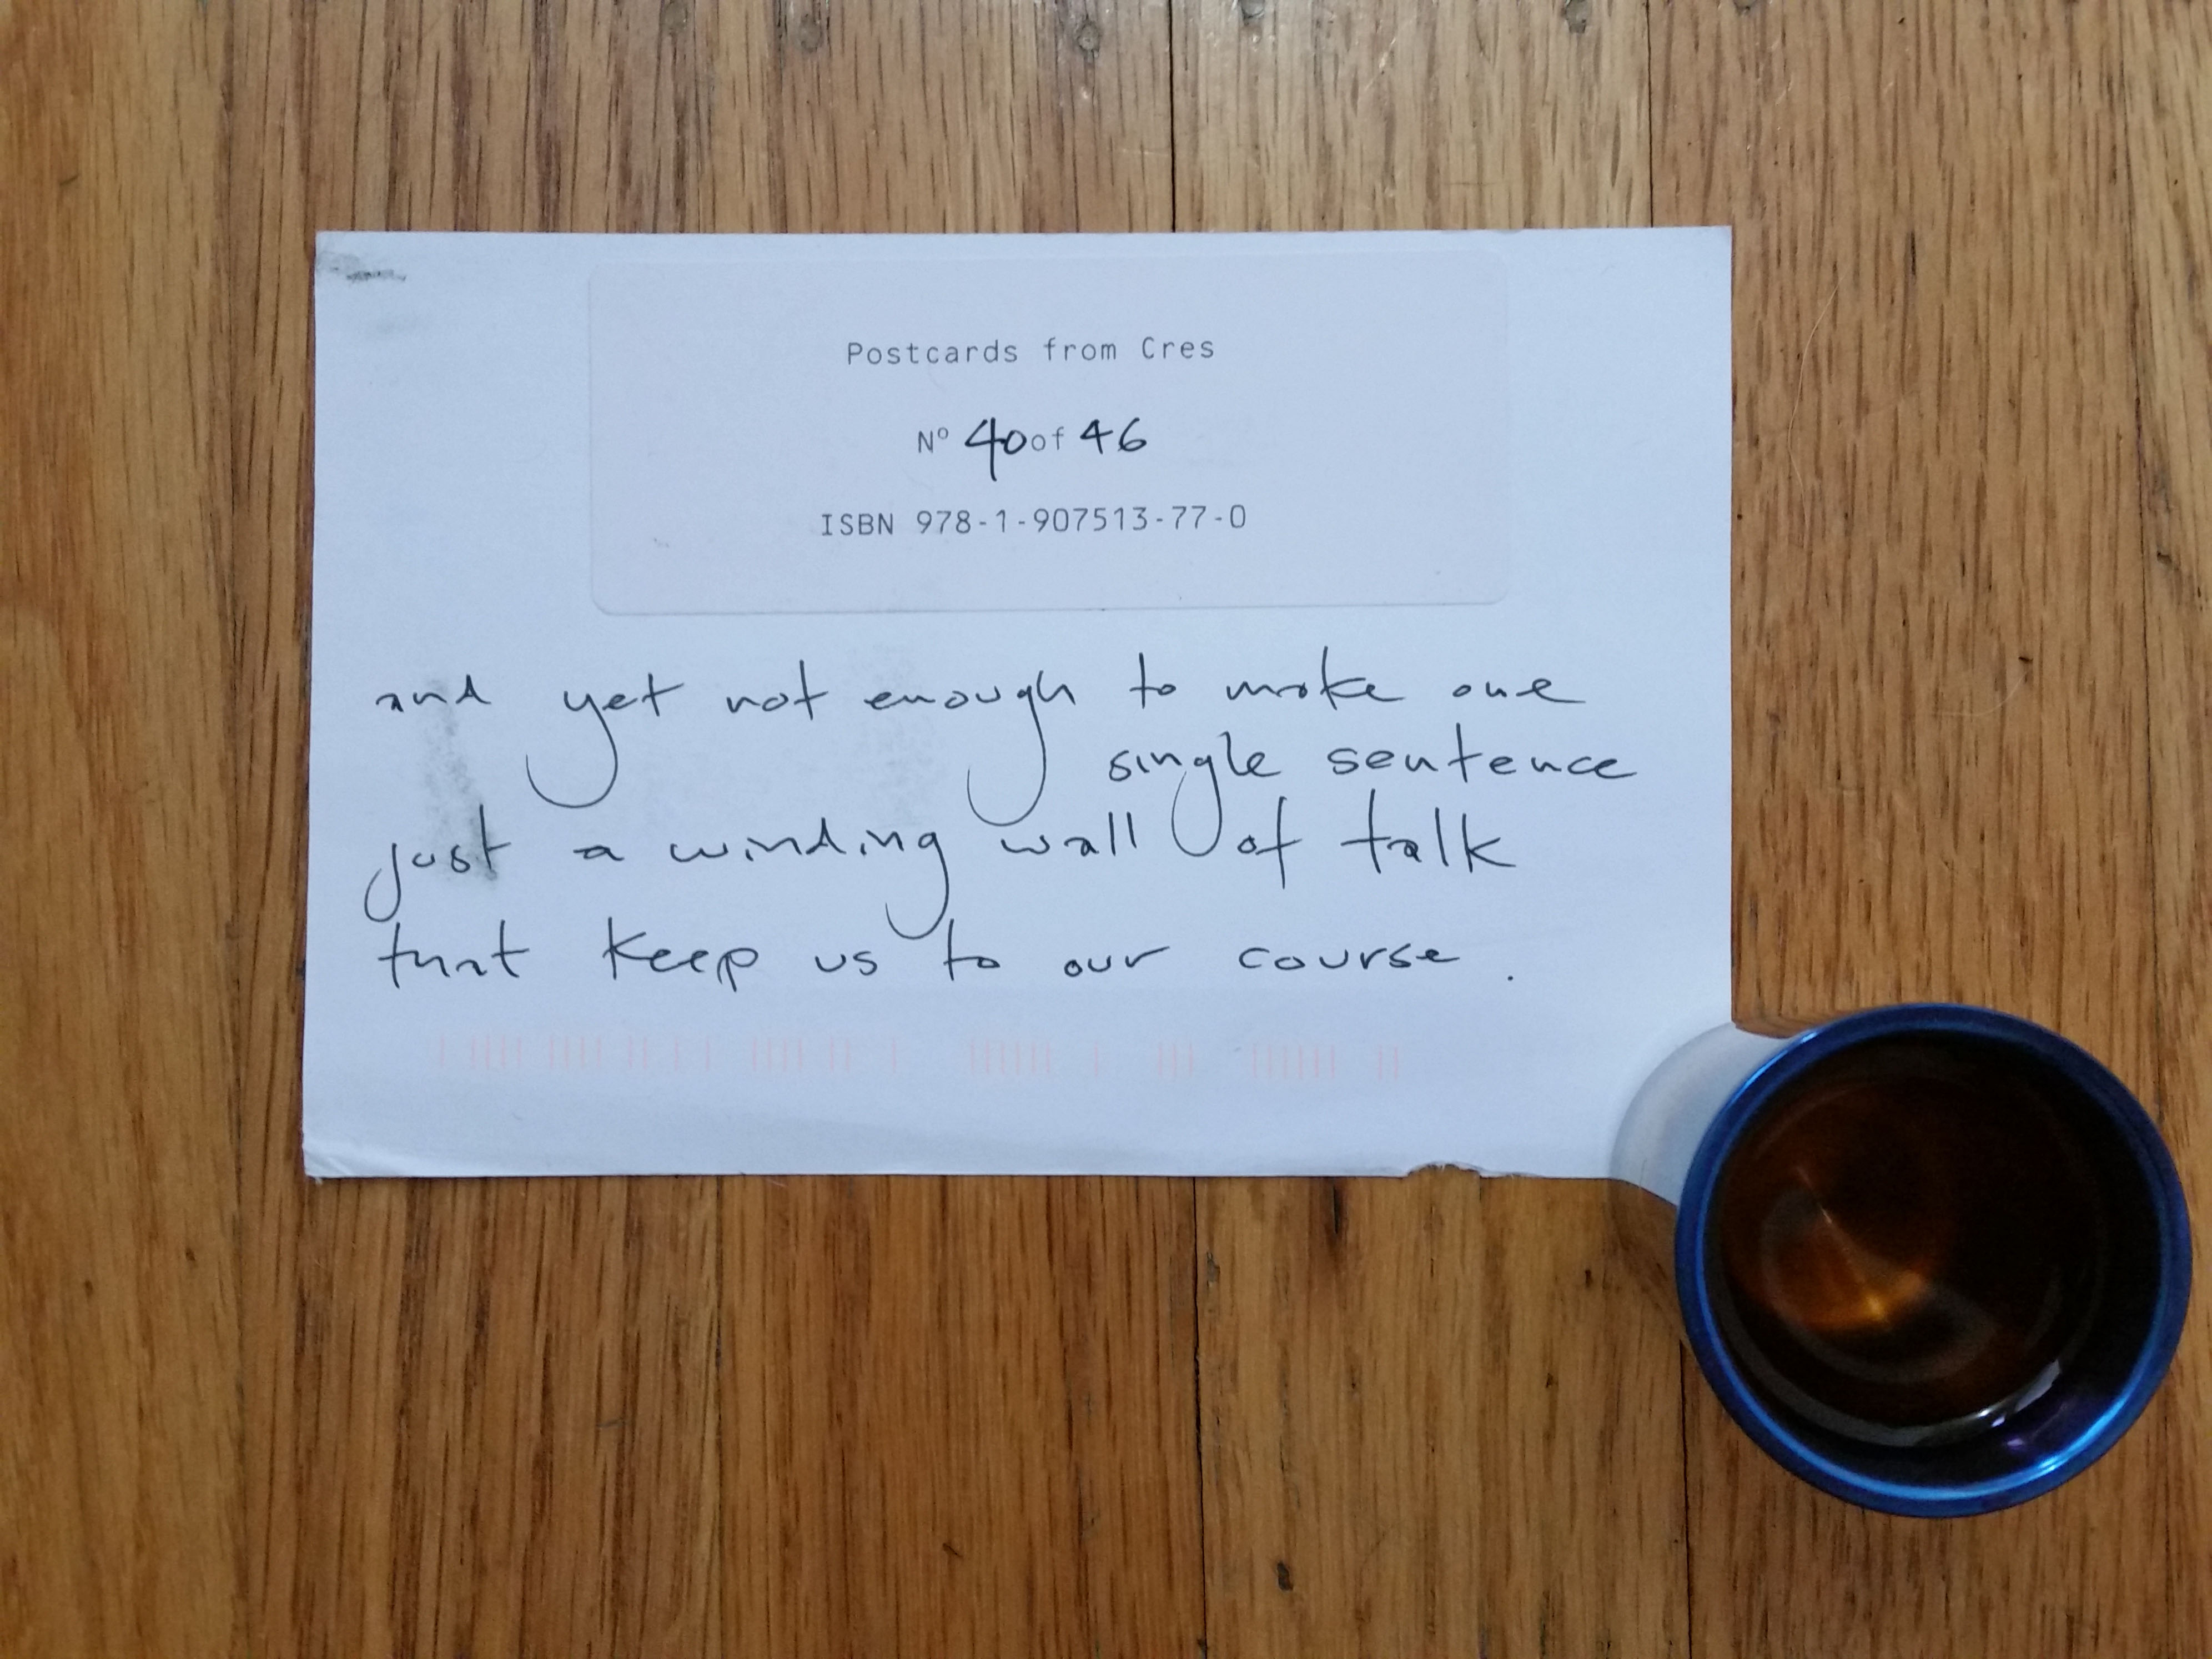 Postcards from Cres
Nº 40 of 46
ISBN 978-1-907513-77-0
and yet not enough to make one
single sentence
just a winding wall of talk
that keep us to our course.